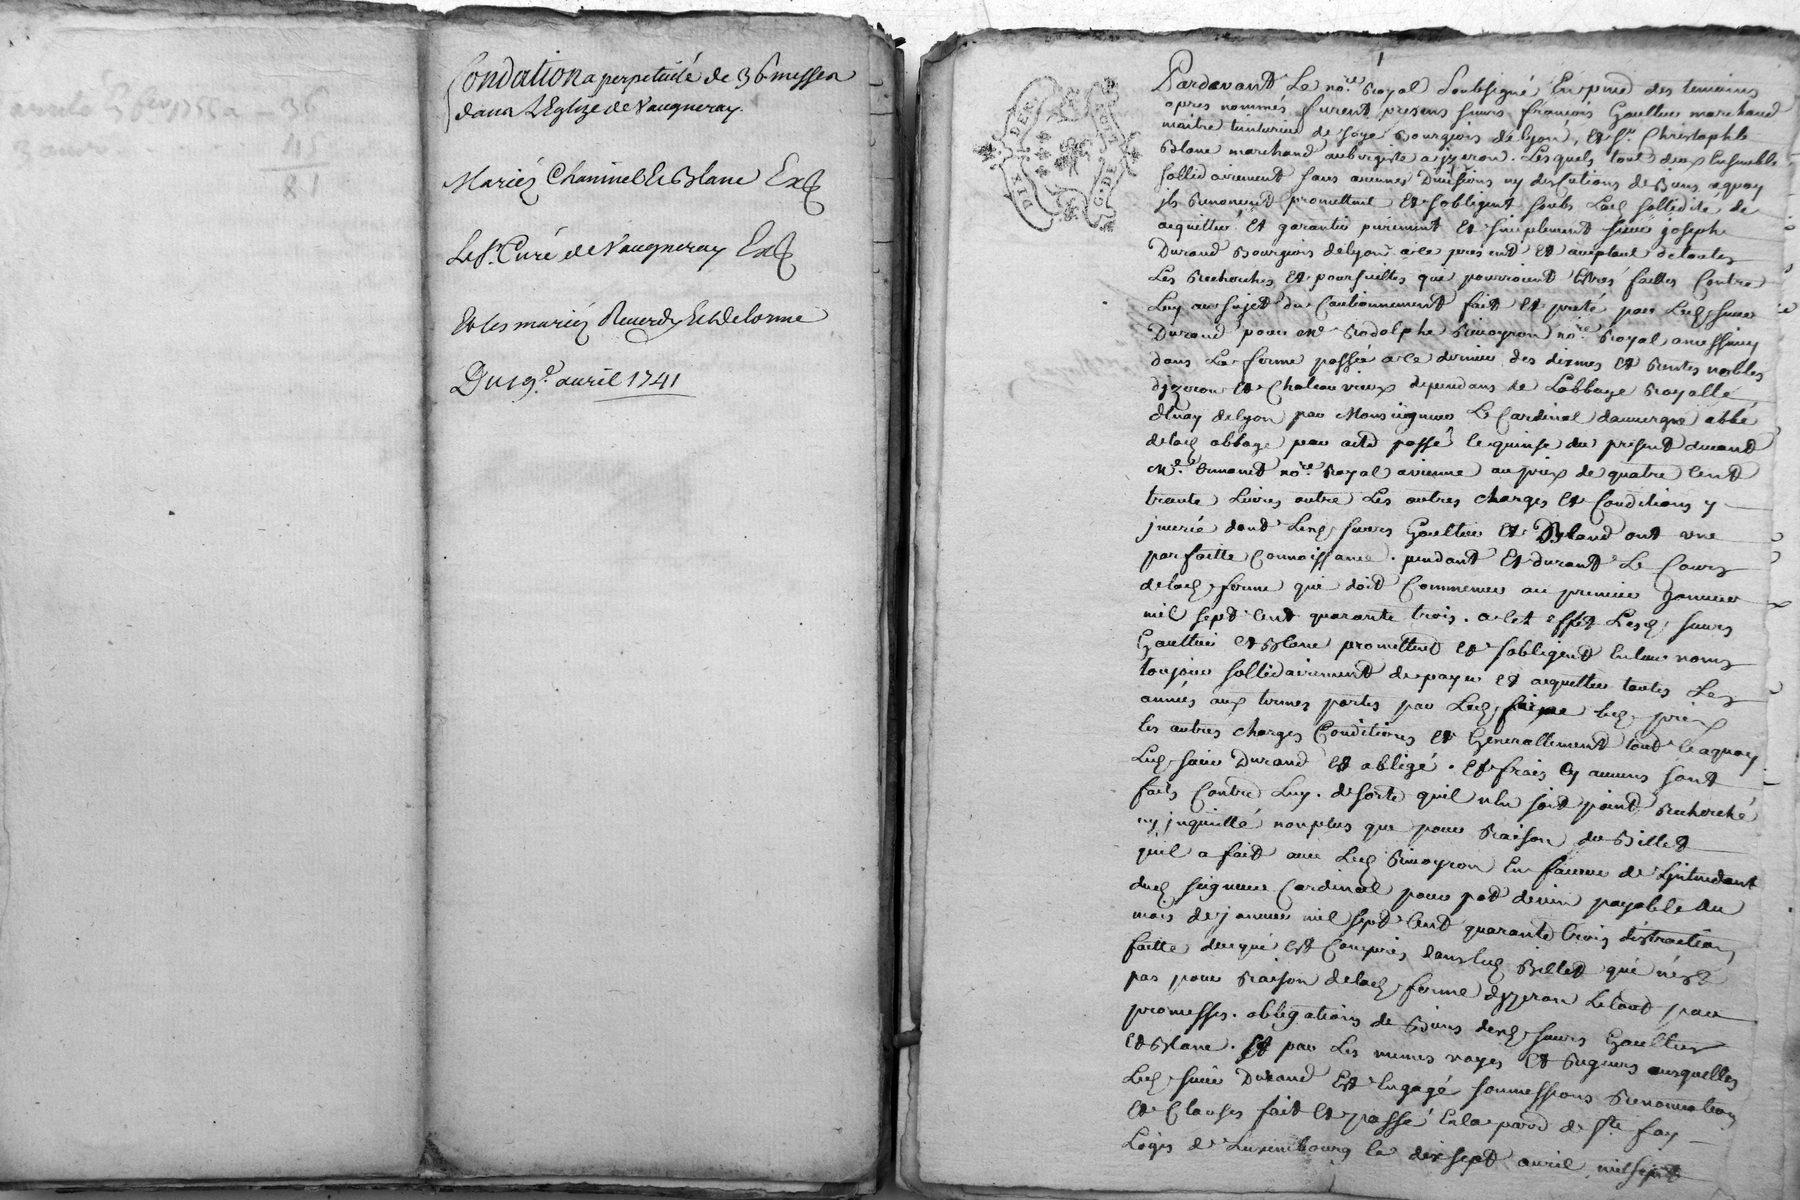 fondation a perpetuité de 36 messes
dans L'Eglize de Vaugneray.
Mariés Chaninel Et Blanc Ex
Le Sr. Curé de Vaugneray Ex
Et les mariés Reverdy Et Delorme
Du 19e. avril 1741
36
45
81
Pardevant Le nore. Royal Soubsigné En pnce des temoins
apres nommés furent presens sieurs françois Gaultier marchand
maitre teinturier de soye Bourgeois de Lyon, Et Sr. Christophle
Blanc marchand aubergiste a jzeron. Lesquels tout deux Ensemble
sollidairement sans aucunes Divisions ny discutions de Biens aquoy
jls Renoncent promettent Et sobligent soubs Lad. sollidité de
acquitter Et garantir purement Et simplement sieur joseph
Durand Bourgeois de Lyon a ce present Et acceptant de toutes
Les Recherches Et poursuittes que pourroient Estres faittes Contre
Luy au sujet du Cautionnement fait Et preté par Led. sieur
Durand pour Me. Rodolphe Rivoyron nore. Royal a messimy
dans La ferme passée a ce dernier des dixmes Et Rentes nobles
djzeron Et Chateauvieux dependans de Labbaye Royalle
d'Enay de Lyon par Monseigneur Le Cardinal dauvergne abbé
de lad. abbaye par acte passé le quinse du present devant
Me. nore. Royal a vienne au prix de quatre Cent
trante Livres outre Les autres charges Et Conditions y
jnserée dont Lesd. sieurs Gaultier Et Bland ont une
parfaitte Connoissance. pendant Et durant Le Cours
de lad. ferme qui doit Commencer au premier Janvier
mil sept Cent quarante trois. a Cet effet Lesd. sieurs
Gaultier Et Blanc promettent Et sobligent En leur noms
toujour sollidairement de payer Et acquitter toutes Les
années aux termes portés par Lad. ferme led. prix
les autres charges Conditions Et Generallement tout ce aquoy
Led. sieur Durand Est obligé. Et frais sy aucuns sont
faits Contre Luy. de sorte quil n'En soit point Recherché
ny jnquietté non plus que pour Raison du Billet
quil a fait avec Led. Rivoyron En faveur de Ljntendant
dud. seigneur Cardinal pour pot de vin payable au
mois de janvier mil sept Cent quarante trois distraction
faitte de ce qui Est Compris dans led. Billet qui n'est
pas pour Raison de lad. ferme djzeron Le tout par
promesses. obligations de Biens desd. sieurs Gaultier
Et Blanc. Et par Les mêmes voyes Et Rigeurs ausquelles
Led. sieur Durand Est Engagé soumissions Renonciation
Et Clauses fait Et passé En la parr. de Ste. foy
Logis de Luxembourg le dix sept avril mil sept